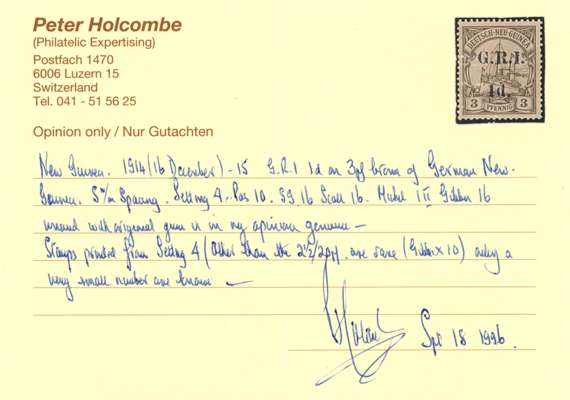 Peter Holcombe
(Philatelic Expertising)
Postfach 1470
6006 Luzern 15
Switzerland
Tel. 041 - 51 56 25
DEUTSCH-NEU-GUINEA
G.R.I.
1d.
3 PFENNIG 3
Opinion only / Nur Gutachten
New Guinea. 1914 (16 December) - 15 G.R.I 1d on 3pf brown of German New
Guinea. 5mm Spacing. Setting 4. Pos 10. SG 16 Scott 16. Michel 1 II Gibbons 16
unused with original gum is in my opinion genuine —
Stamps printed from Setting 4 (other than the 2½/20pf are rare (Gibbons × 10) only a
very small number are known —
Sept 18 1996.